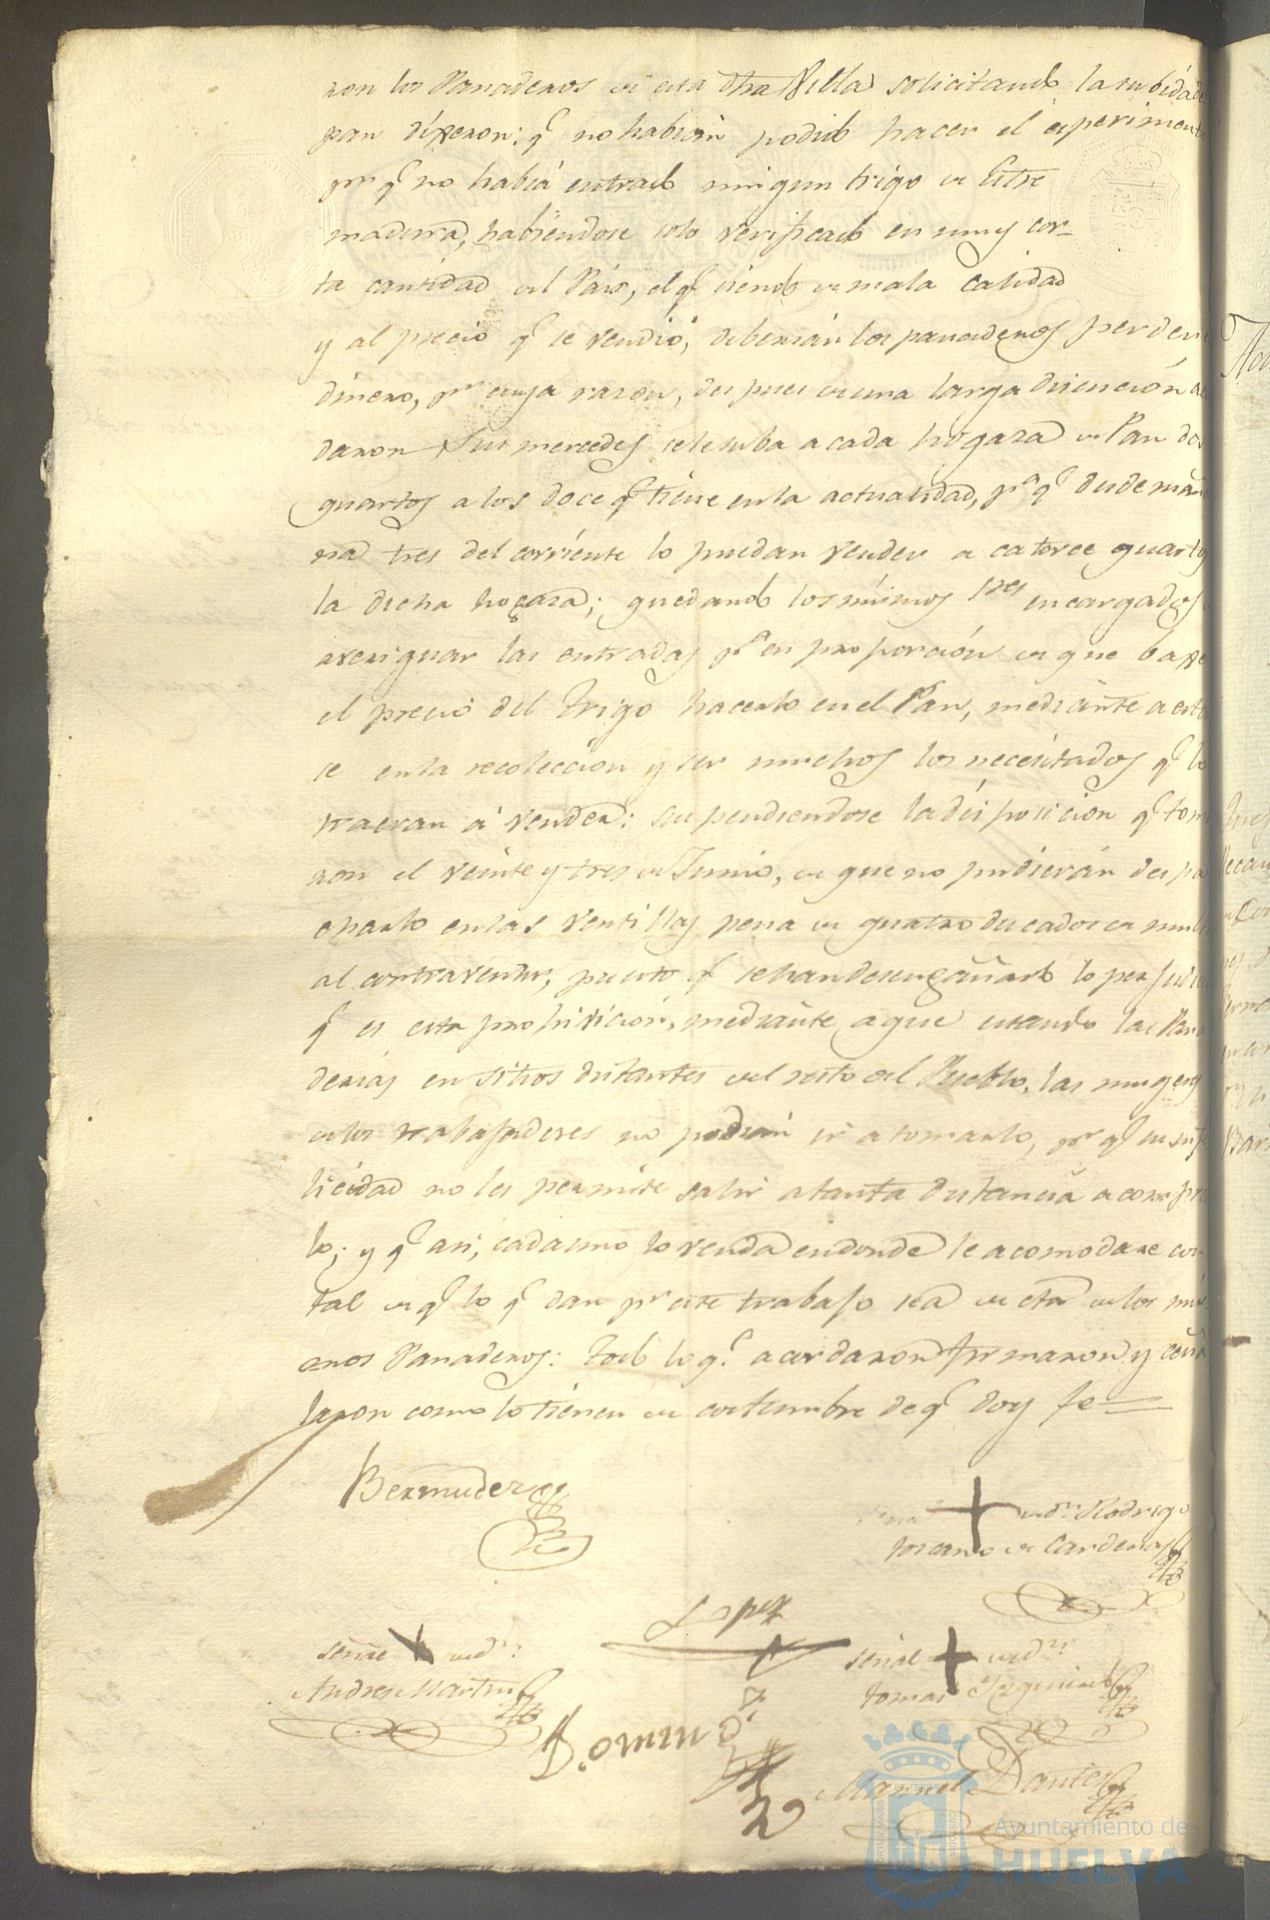 ron los Panaderos de esta dha Villa solicitando la subida de
pan dixeron: q.e no habian podido hacer el experimento
por q.e no habia entrado ningun trigo de Estre
madura, habiendose solo verificado en muy cor-
ta cantidad del Pais, el q.e siendo de mala calidad
y al precio q.e se vendió, deberian los panaderos perder
dinero, pr cuya razon, despues de una larga discucion acor
daron Sus mercedes se le suba a cada hogaza de Pan dos
quartos a los doce q.e tiene en la actualidad, pa q.e desde maña
na tres del corriente lo puedan vender a catorce quartos
la dicha hogaza; quedando los mismos Sres encargados
averiguar las entradas pa en proporción de que baxe
el precio del Trigo hacerlo en el Pan, mediante a estar
se en la recolección y ser muchos los necesitados q.e lo
traeran á vender: suspendiendose la disposicion q.e toma
ron el veinte y tres de Junio, de que no pudieran despa
charlo en las ventillas pena de quatro ducados de multa
al contraventor, puesto q.e se han desengañado lo perjudicial
q.e es esta prohivicion, mediante a que estando las Pana
derias en sitios distantes del resto del Pueblo, las mugeres
de los trabajadores no podian ir a tomarlo, pr q.e su infe
licidad no les permite salir a tanta distancia a comprar
lo; y q.e asi, cada uno lo venda en donde le acomodare con
tal de q.e lo q.e dan pr este trabajo sea de cta de los mis
mos Panaderos: Todo lo q.e acordaron firmaron y seña
laron como lo tienen de costumbre de q.e doy fe
Bermudez
Señal + de dn Rodrigo
Toscano de Cardenas
Lopez
señal + de dn
Andres Martin
señal + de dn
Tomas Yzquierdo
Domingo
Manuel Dantes
Ayuntamiento de
HUELVA